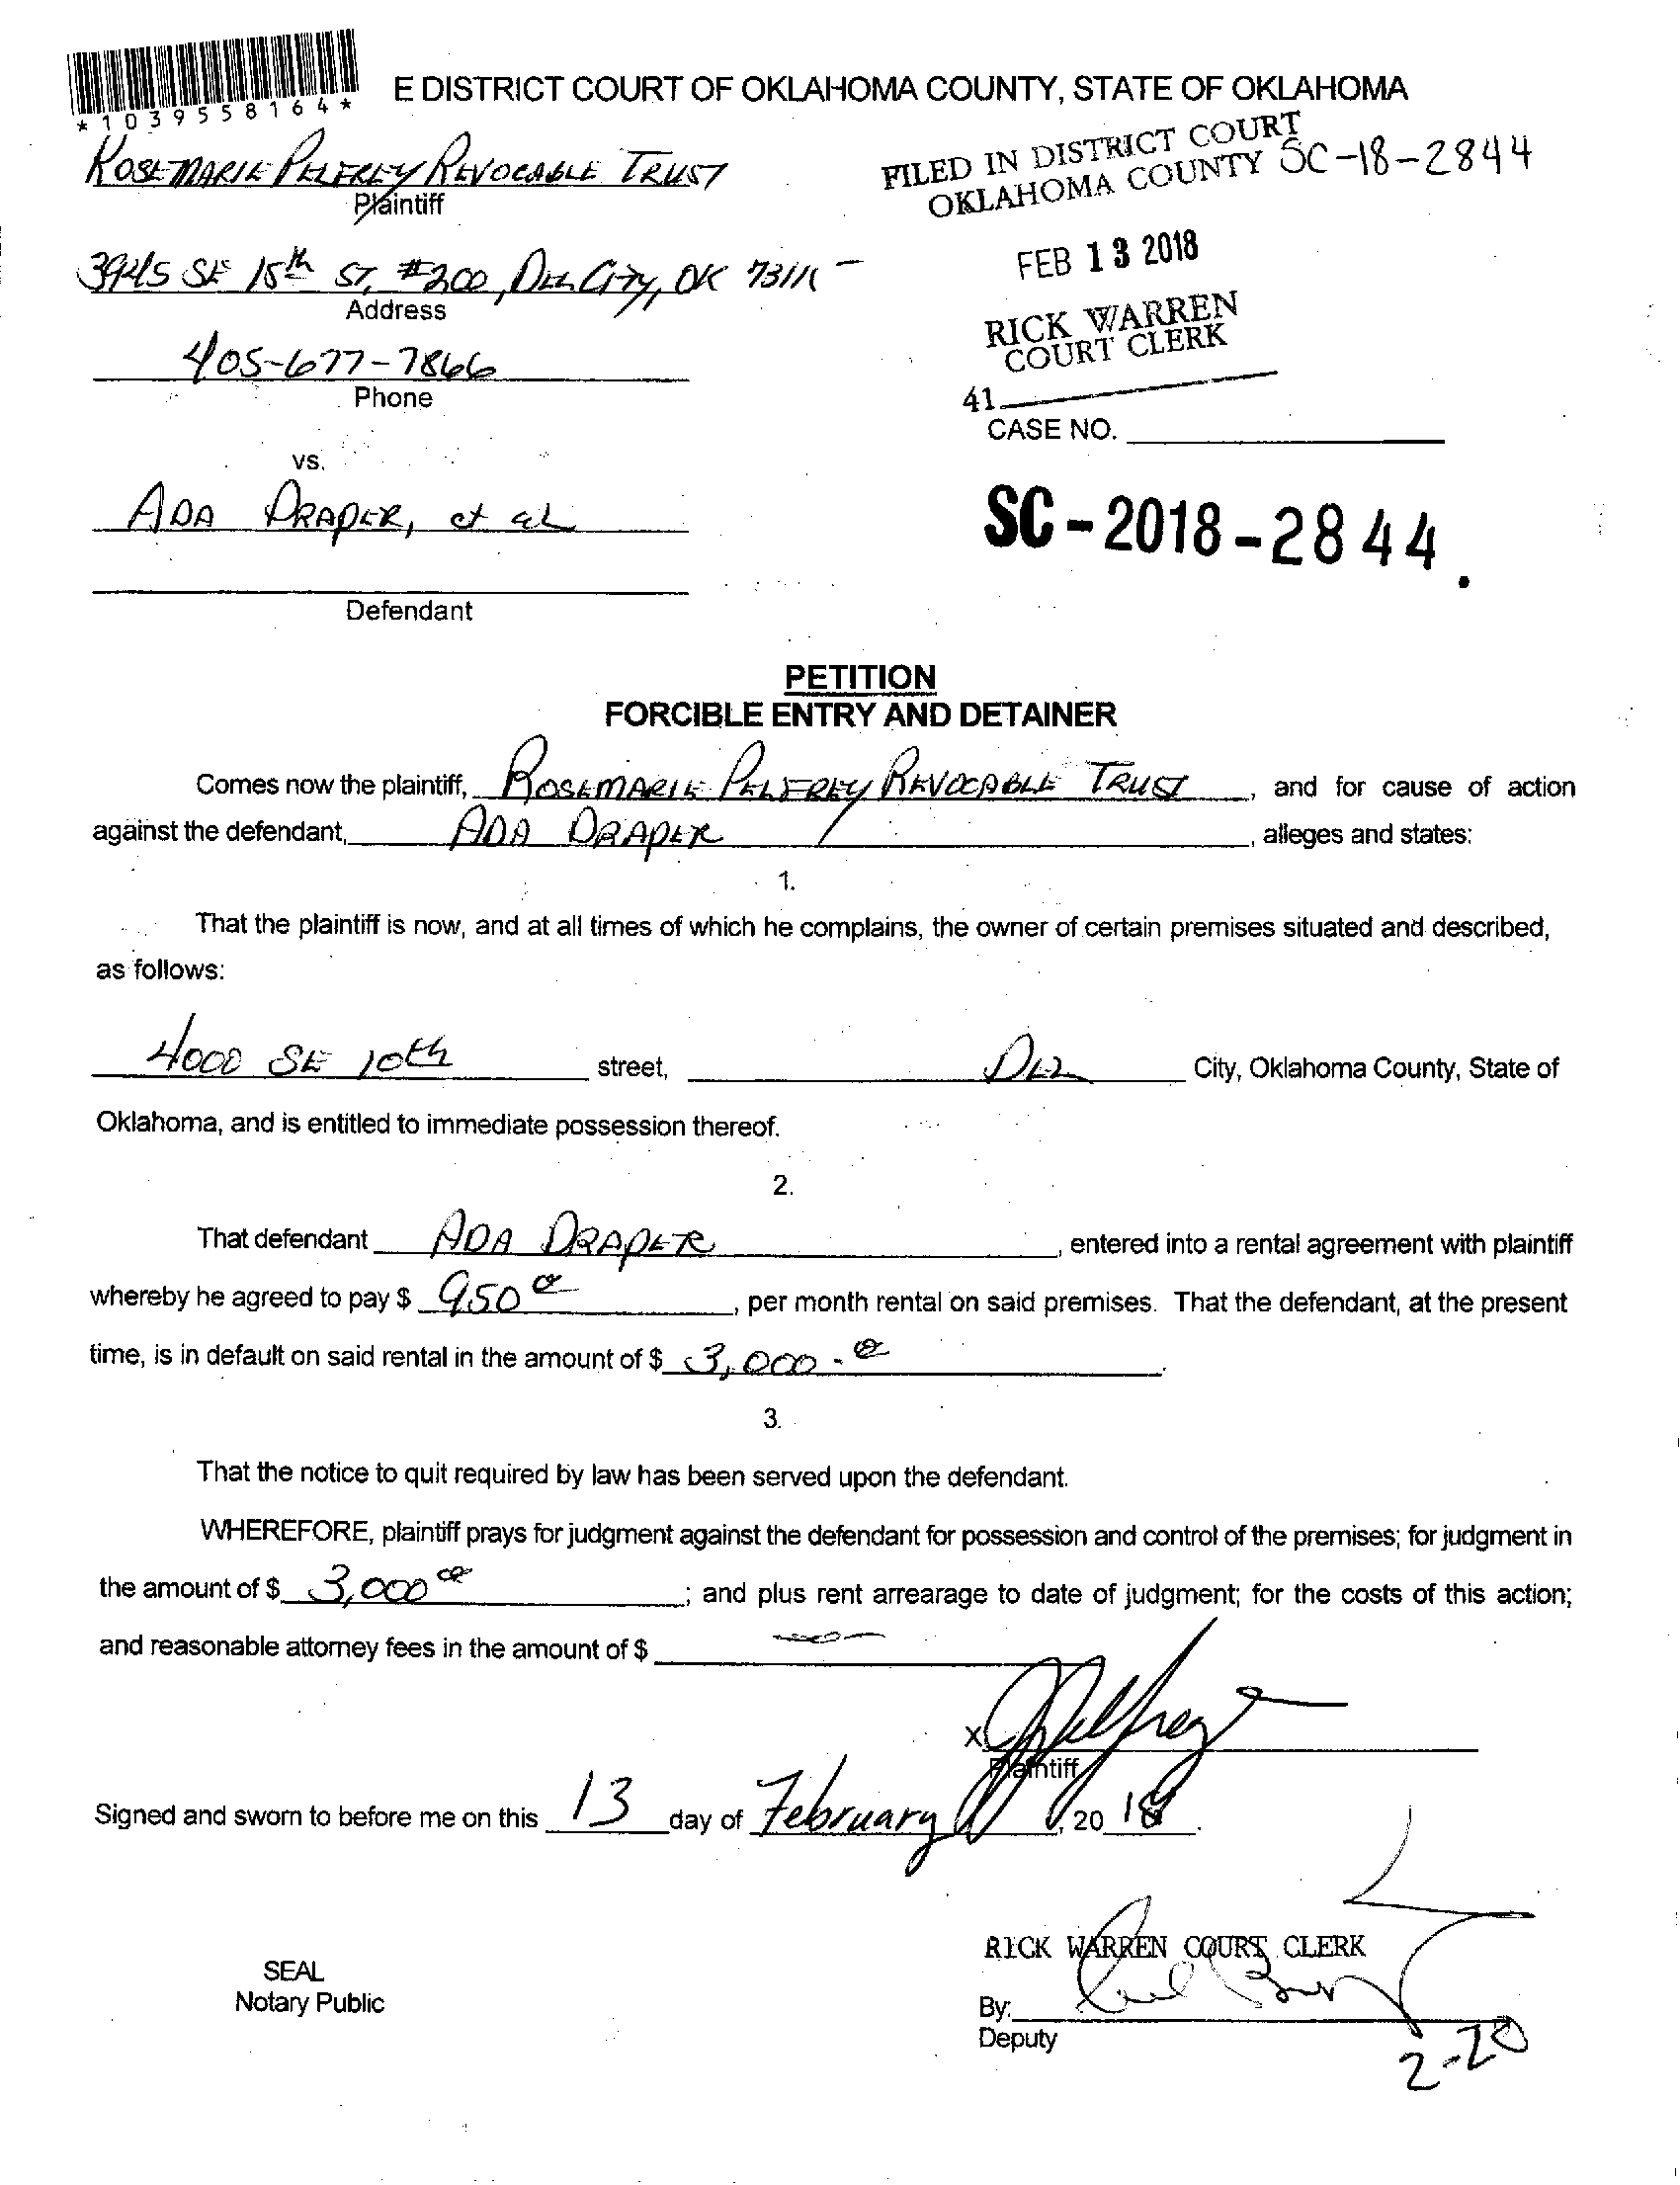 *1039558164*
E DISTRICT COURT OF OKLAHOMA COUNTY, STATE OF OKLAHOMA
ROSEMARIE PELFREY REVOCABLE TRUST
Plaintiff
FILED IN DISTRICT COURT
OKLAHOMA COUNTY SC-18-2844
3945 SE 15th ST, #200, DEL CITY, OK 73111
Address
FEB 13 2018
405-677-7866
Phone
RICK WARREN
COURT CLERK
41
CASE NO.
vs.
ADA DRAPER, et al
SC-2018-2844.
Defendant
PETITION
FORCIBLE ENTRY AND DETAINER
Comes now the plaintiff, ROSEMARIE PELFREY REVOCABLE TRUST, and for cause of action
against the defendant, ADA DRAPER, alleges and states:
1.
That the plaintiff is now, and at all times of which he complains, the owner of certain premises situated and described,
as follows:
4000 SE 10th street, DEL City, Oklahoma County, State of
Oklahoma, and is entitled to immediate possession thereof.
2.
That defendant ADA DRAPER, entered into a rental agreement with plaintiff
whereby he agreed to pay $ 950 00, per month rental on said premises. That the defendant, at the present
time, is in default on said rental in the amount of $ 3,000.00.
3.
That the notice to quit required by law has been served upon the defendant.
WHEREFORE, plaintiff prays for judgment against the defendant for possession and control of the premises; for judgment in
the amount of $ 3,000 00; and plus rent arrearage to date of judgment; for the costs of this action;
and reasonable attorney fees in the amount of $
X
Plaintiff
Signed and sworn to before me on this 13 day of February, 20 18.
RICK WARREN COURT CLERK
SEAL
Notary Public
By:
Deputy
2-20